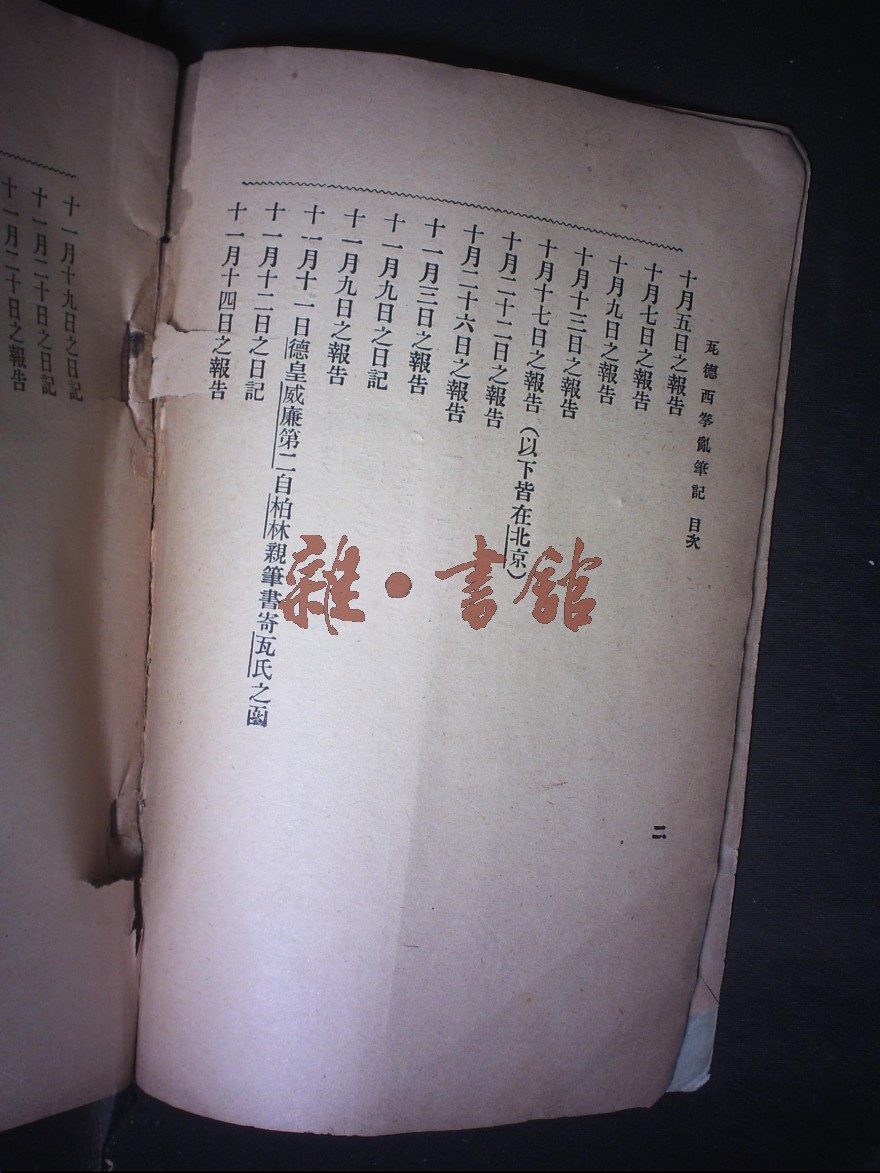 瓦德西拳亂筆記 目次
二
十月五日之報告
十月七日之報告
十月九日之報告
十月十三日之報告
十月十七日之報告(以下皆在北京)
十月二十二日之報告
十月二十六日之報告
十一月三日之報告
十一月九日之日記
十一月九日之報告
十一月十一日德皇威廉第二自柏林親筆書寄瓦氏之函
十一月十二日之日記
十一月十四日之報告
十一月十九日之日記
十一月二十日之日記
十一月二十日之報告
雜·書館